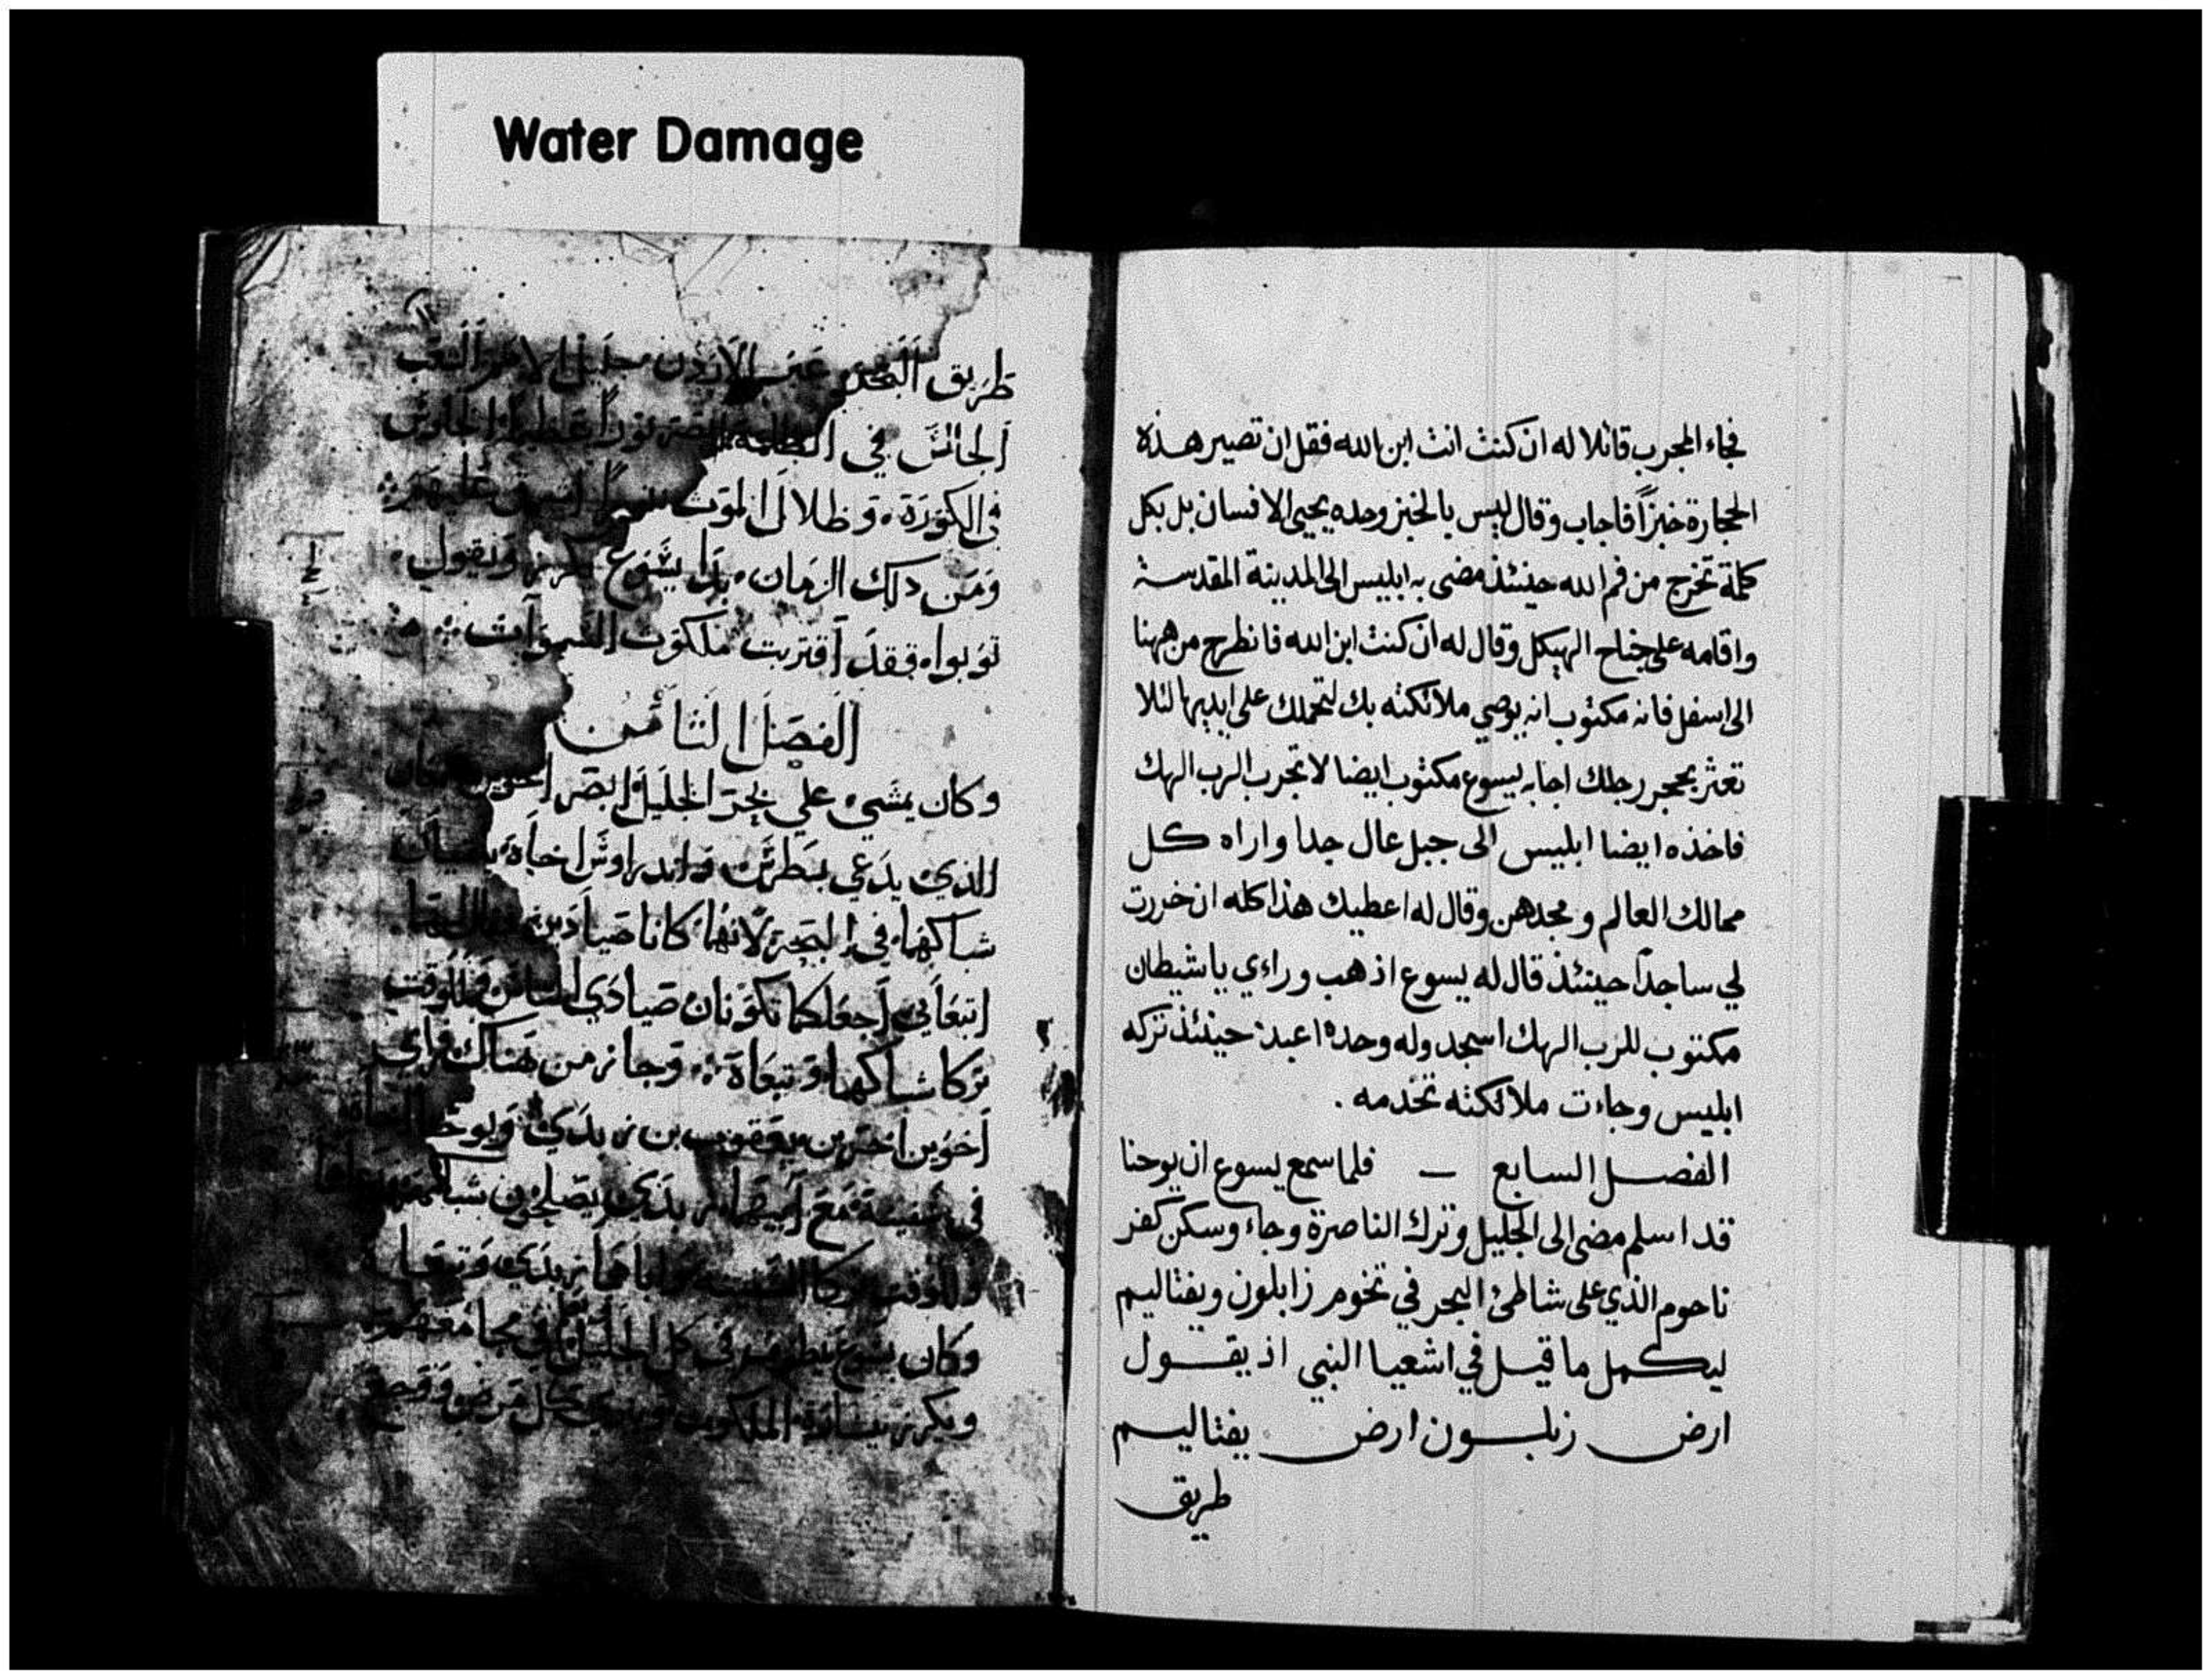 Water Damage
فجاء المجرب قائلا له ان كنت انت ابن الله فقل ان تصير هذه
الحجارة خبزاً فاجاب وقال ليس بالخبز وحده يحيى الانسان بل بكل
كلمة تخرج من فم الله حينئذ مضى به ابليس الى المدينة المقدسة
واقامه على جناح الهيكل وقال له ان كنت ابن الله فانطرح من ههنا
الى اسفل فانه مكتوب انه يوصي ملائكته بك لتحملك على ايديها لئلا
تعثر بحجر رجلك اجابه يسوع مكتوب ايضا لا تجرب الرب الهك
فاخذه ايضا ابليس الى جبل عال جدا واراه كل
ممالك العالم ومجدهن وقال له اعطيك هذا كله ان خررت
لي ساجداً حينئذ قال له يسوع اذهب وراءي يا شيطان
مكتوب للرب الهك اسجد وله وحده اعبد حينئذ تركه
ابليس وجاءت ملائكته تخدمه .
الفصل السابع — فلما سمع يسوع ان يوحنا
قد اسلم مضى الى الجليل وترك الناصرة وجاء وسكن كفر
ناحوم الذي على شاطئ البحر في تخوم زابلون ويفتاليم
ليكمل ما قيل في اشعيا النبي اذ يقول
ارض زبلون ارض يفتاليم
طريق
طَريق البَحْر عَبر الاَردن جليل الامم الشعب
الجالس في الظلمة ابصر نوراً عظيماً الجلوس
في الكورَة وَظلال الموت اشرق عليهم
وَمَن دلك الزمان بدا يَسُوع يكرز وَيقول
توَبوا فقدَ آقتربت ملكوت السموات
الفصَل الثَامن
وكان يمشي علي بحر الجليل ابصر اخوين
الذي يدَعي بطرس واندراوس اخاه يلقيان
شباكهما في البحر لانهما كانا صيادين
اتبعَاني آجعَلكما تكونان صيادي الناس وللوقت
تركا شباكهما وَتبعَاة وَجاز من هناك فراى
آخوَين اخرين يعقوب بن زبدي وَيوحنا
في سفينة مَع آبيهما زبدَي يصلحون شباكهم
وللوقت تركا السفينه واباهما زبدَي وَتبعَاه
وكان يسوع يطوف في كل الجليل في مجامعهم
ويكرز ببشارة الملكوت كل مَرض وَوجع